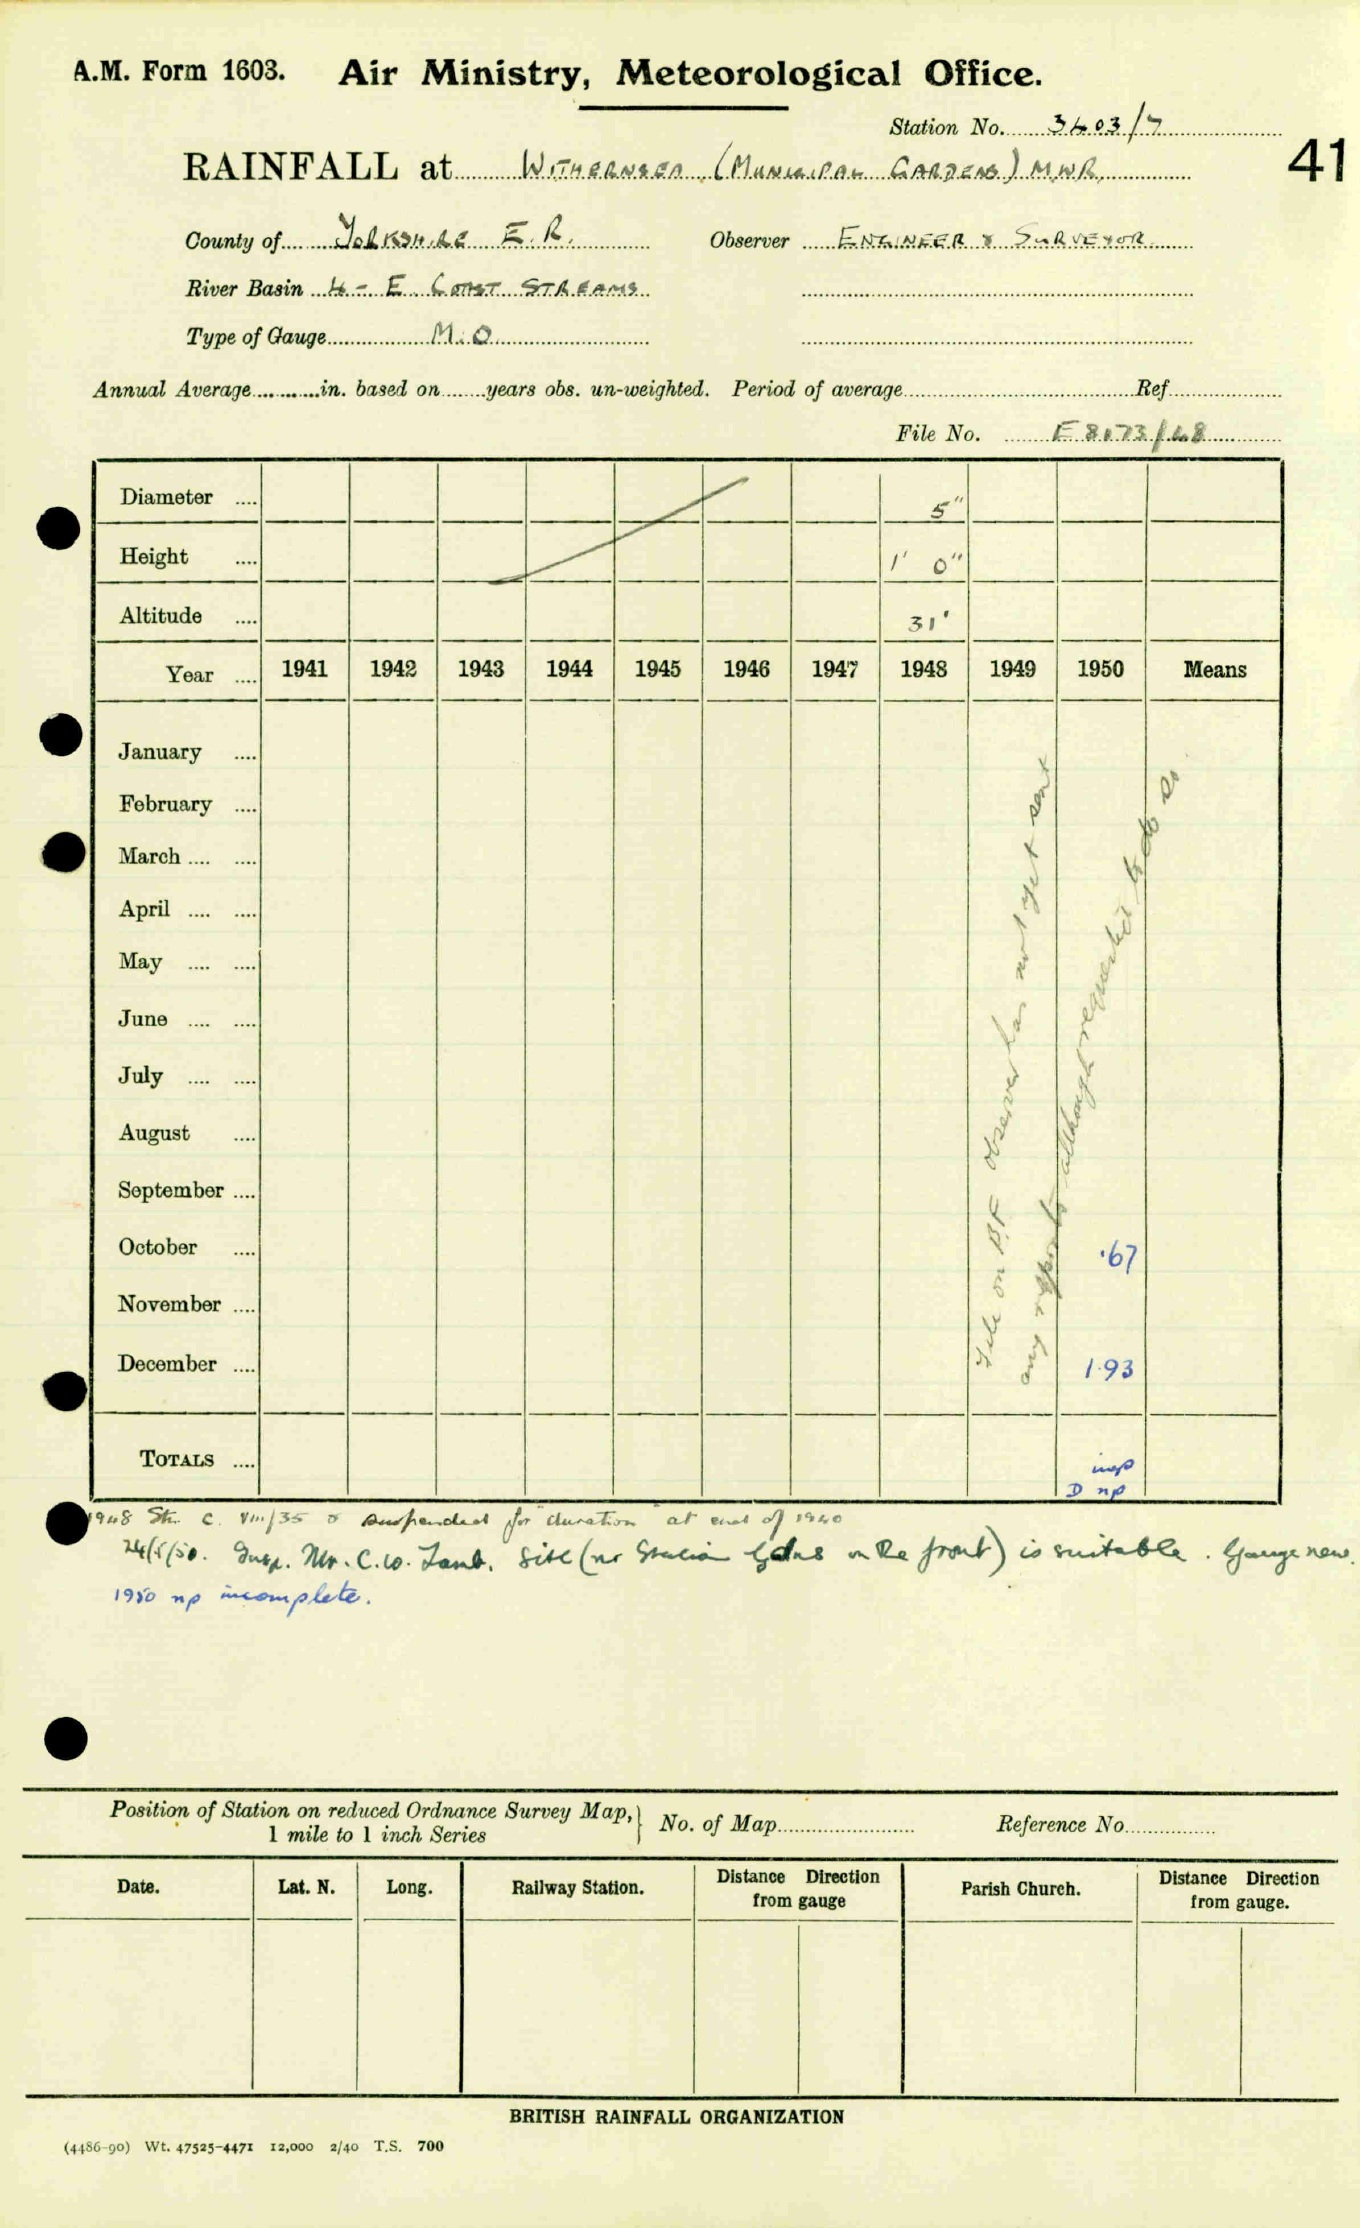 A.M. Form 1603. Air Ministry, Meteorological Office.
Station No. 3403/7
41
RAINFALL at WITHERNSEA (MUNICIPAL GARDENS) MWR
County of YORKSHIRE E.R. Observer ENGINEER & SURVEYOR
River Basin 4 - E. COAST STREAMS
Type of Gauge M.O.
Annual Average in. based on years obs. un-weighted. Period of average Ref
File No. E8173/48
Diameter .... 5"
Height .... 1' 0"
Altitude .... 31'
Year .... 1941 1942 1943 1944 1945 1946 1947 1948 1949 1950 Means
January ....
February ....
March .... ....
April .... ....
May .... ....
June .... ....
July .... ....
August ....
September ....
October .... ·67
November ....
December .... 1·93
File on BF observer has not yet sent
any reports although requested to do so.
TOTALS .... 
D np
1948 Stn. C. VIII/35 & suspended for "duration" at end of 1940
24/5/50. Insp. Mr. C.W. Lamb. Site (nr Station Gdns on the front) is suitable. Gauge new.
1950 np incomplete.
Position of Station on reduced Ordnance Survey Map,
1 mile to 1 inch Series
No. of Map Reference No.
Date. Lat. N. Long. Railway Station. Distance Direction from gauge Parish Church. Distance Direction from gauge.
BRITISH RAINFALL ORGANIZATION
(4486-90) Wt. 47525-4471 12,000 2/40 T.S. 700